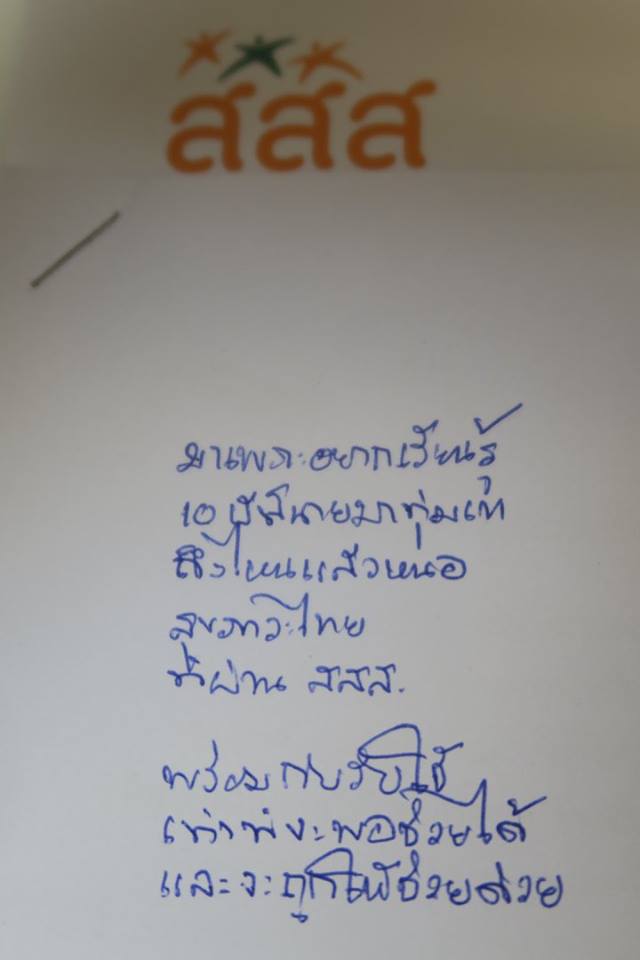 สสส
มาเพราะอยากเรียนรู้
10 ปีที่นายมาทุ่มเท
ถึงไหนแล้วหนอ
สุขภาวะไทย
ที่ผ่าน สสส.
พร้อมกับรับใช้
เท่าที่จะพอช่วยได้
และจะถูกใช้ช่วยด้วย